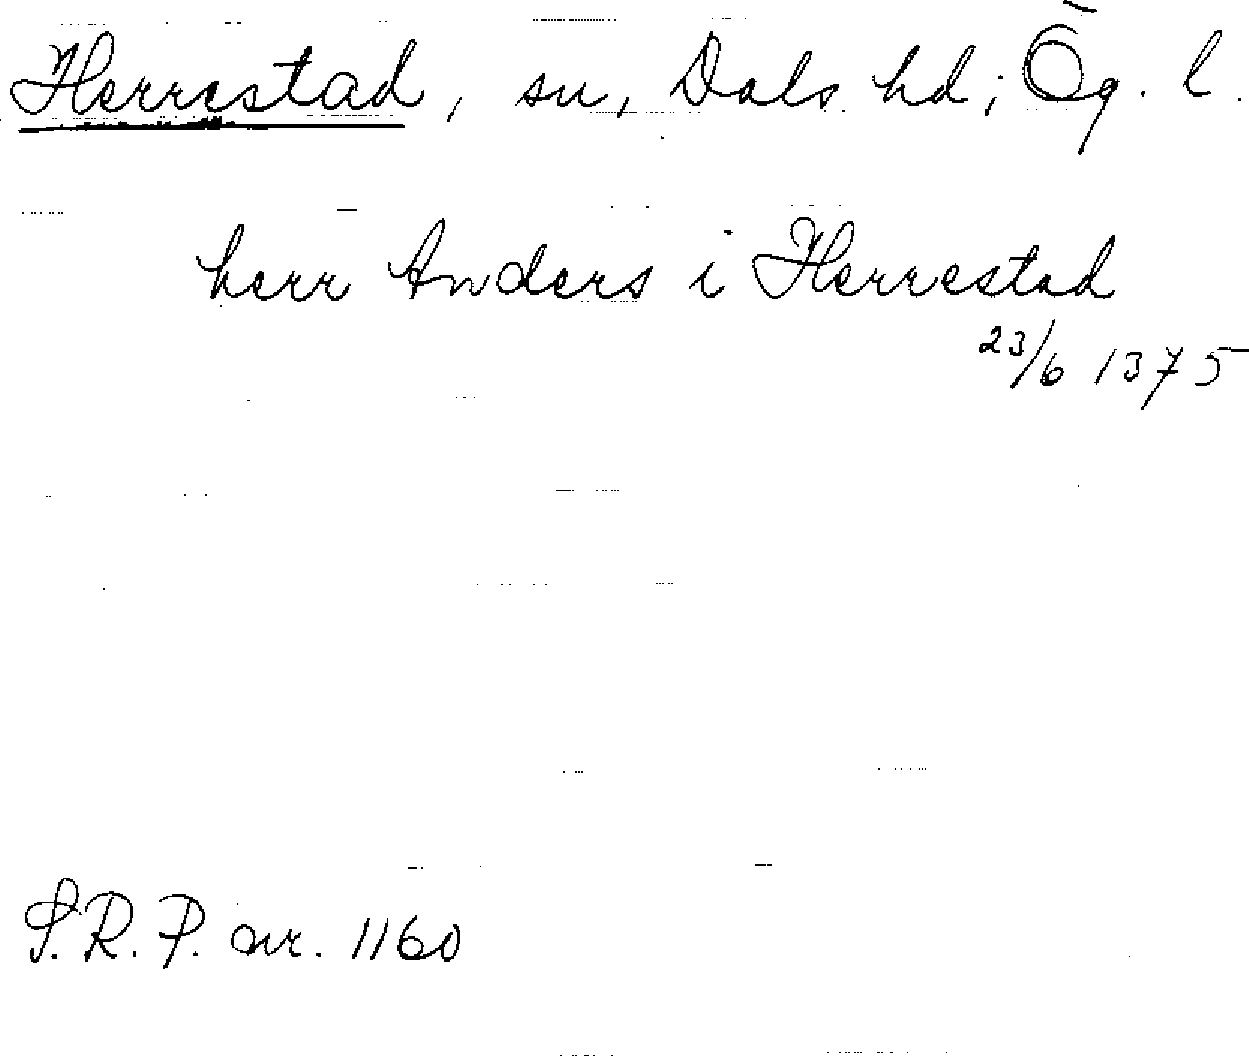 Herrestad, sn, Dals hd; Ög. l.
herr Anders i Herrestad
23/6 1375
S.R.P. nr. 1160